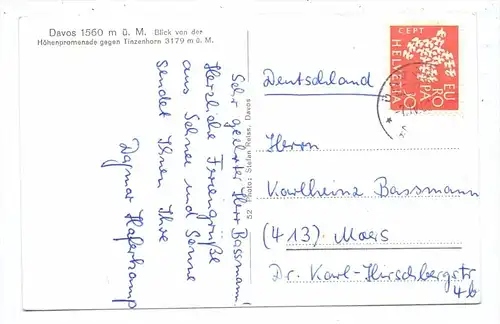 Davos 1560 m ü. M. Blick von der
Höhenpromenade gegen Tinzenhorn 3179 m ü. M.
Sehr geehrter Herr Bassmann!
Herzliche Feriengrüße
aus Schnee und Sonne
sendet Ihnen Ihre
Dagmar Haferkamp
52 Photo: Stefan Reiss, Davos
CEPT
HELVETIA
EUROPA
10
Deutschland
Herrn
Karlheinz Bassmann
(413) Moers
Dr. Karl-Hirschbergstr
4b